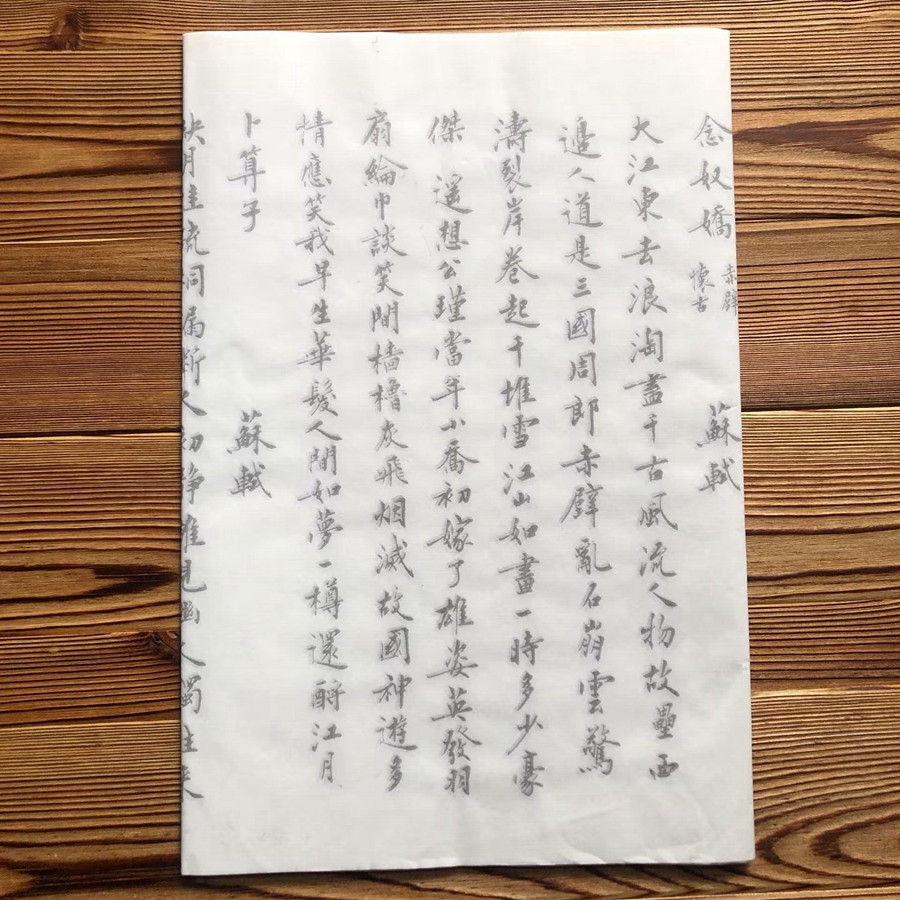 念奴嬌 赤壁懷古 蘇軾
大江東去浪淘盡千古風流人物故壘西
邊人道是三國周郎赤壁亂石崩雲驚
濤裂岸卷起千堆雪江山如畫一時多少豪
傑 遙想公瑾當年小喬初嫁了雄姿英發羽
扇綸巾談笑間檣櫓灰飛烟滅故國神遊多
情應笑我早生華髮人間如夢一樽還酹江月
卜算子 蘇軾
缺月挂疏桐漏斷人初靜誰見幽人獨往來